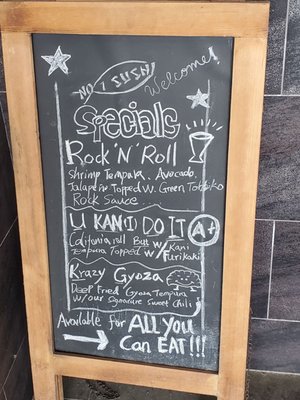 No 1 SUSHI
Welcome!
Specials
Rock 'N' Roll
Shrimp Tempura, Avocado,
Jalapeño Topped w. Green Tobiko
Rock Sauce
U KAN(I) DO IT
A+
California roll But w/ Kani
Tempura Topped w/ Furikaki
Krazy Gyoza
Deep Fried Gyoza Tempura
w/ our Signature Sweet chili
Available for ALL You
Can EAT!!!